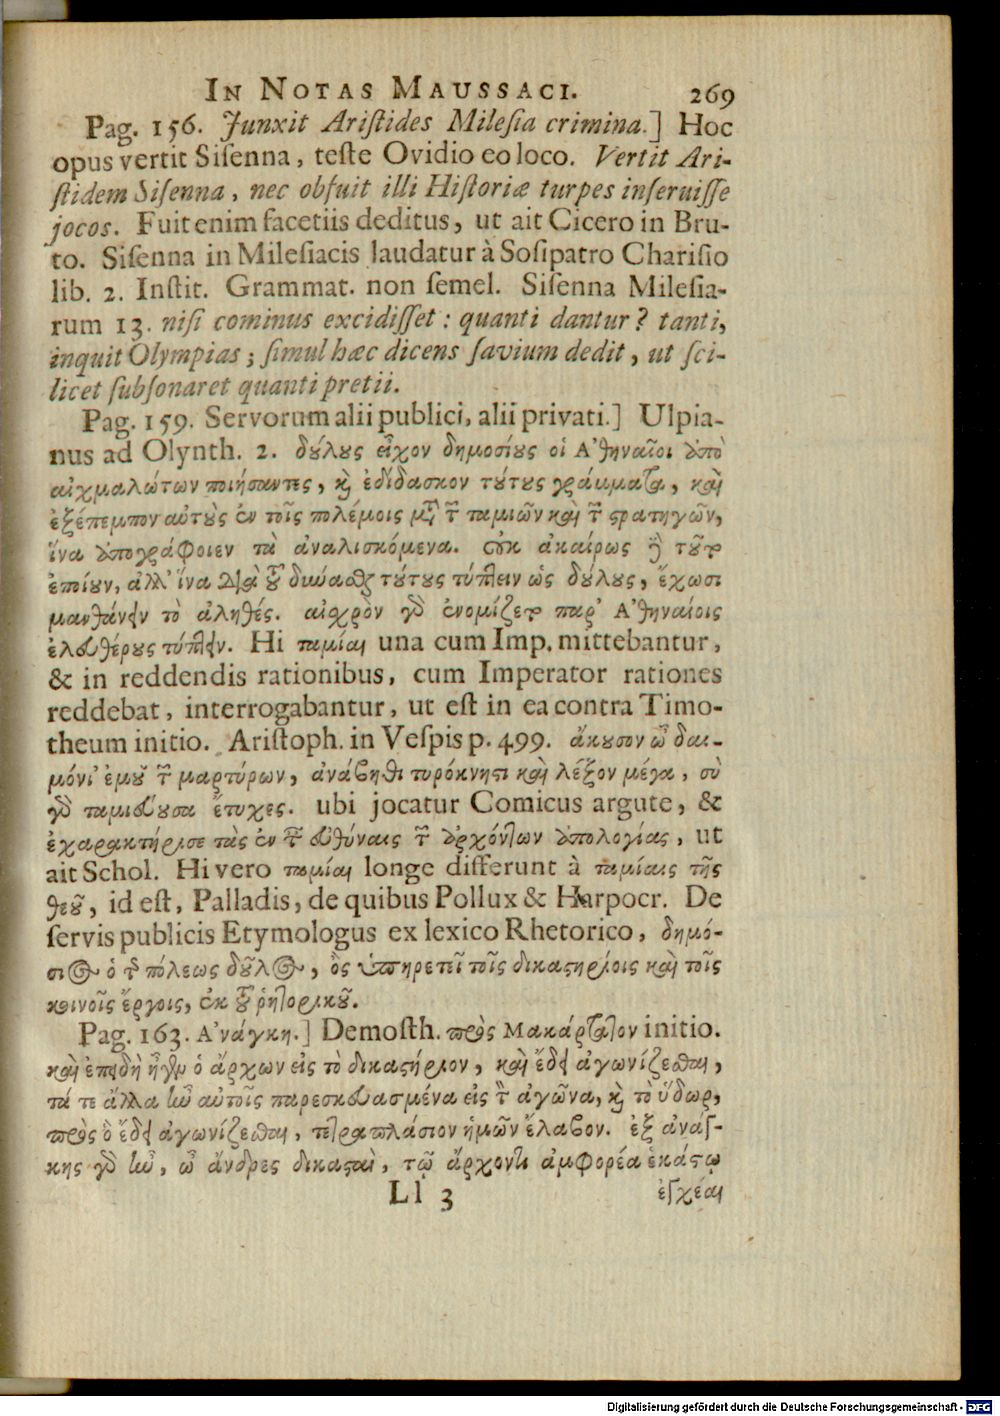 IN NOTAS MAUSSACI. 269
Pag. 156. Junxit Ariſtides Mileſia crimina.] Hoc
opus vertit Siſenna, teſte Ovidio eo loco. Vertit Ari-
ſtidem Siſenna, nec obfuit illi Hiſtoriæ turpes inſeruiſſe
jocos. Fuit enim facetiis deditus, ut ait Cicero in Bru-
to. Siſenna in Mileſiacis laudatur à Soſipatro Chariſio
lib. 2. Inſtit. Grammat. non ſemel. Siſenna Mileſia-
rum 13. niſi cominus excidiſſet: quanti dantur? tanti,
inquit Olympias; ſimul hæc dicens ſavium dedit, ut ſci-
licet ſubſonaret quanti pretii.
Pag. 159. Servorum alii publici, alii privati.] Ulpia-
nus ad Olynth. 2. δούλους εἶχον δημοσίους οἱ Ἀθηναῖοι ἀπὸ
αἰχμαλώτων ποιήσαντες, καὶ ἐδίδασκον τούτους γράμματα, καὶ
ἐξέπεμπον αὐτοὺς ἐν τοῖς πολέμοις μετὰ τῶν ταμιῶν καὶ τῶν στρατηγῶν,
ἵνα ἀπογράφοιεν τὰ ἀναλισκόμενα. οὐκ ἀκαίρως δὲ τοῦτο
ἐποίουν, ἀλλ' ἵνα διὰ τοῦ δύνασθαι τούτους τύπτειν ὡς δούλους, ἔχωσι
μανθάνειν τὸ ἀληθές. αἰσχρὸν γὰρ ἐνομίζετο παρ' Ἀθηναίοις
ἐλευθέρους τύπτειν. Hi ταμίαι una cum Imp. mittebantur,
& in reddendis rationibus, cum Imperator rationes
reddebat, interrogabantur, ut eſt in ea contra Timo-
theum initio. Ariſtoph. in Veſpis p. 499. ἄκουσον ὦ δαι-
μόνι' ἐμοῦ τῶν μαρτύρων, ἀνάβηθι τυρόκνηστι καὶ λέξον μέγα, σὺ
γὰρ ταμιεύουσα ἔτυχες. ubi jocatur Comicus argute, &
ἐχαρακτήρισε τὰς ἐν ταῖς εὐθύναις τῶν ἀρχόντων ἀπολογίας, ut
ait Schol. Hi vero ταμίαι longe differunt à ταμίαις τῆς
θεοῦ, id eſt, Palladis, de quibus Pollux & Harpocr. De
ſervis publicis Etymologus ex lexico Rhetorico, δημό-
σιος ὁ τῆς πόλεως δοῦλος, ὃς ὑπηρετεῖ τοῖς δικαστηρίοις καὶ τοῖς
κοινοῖς ἔργοις, ἐκ τοῦ ῥητορικοῦ.
Pag. 163. Ἀνάγκη.] Demoſth. πρὸς Μακάρτατον initio.
καὶ ἐπειδὴ ἦγεν ὁ ἄρχων εἰς τὸ δικαστήριον, καὶ ἔδει ἀγωνίζεσθαι,
τά τε ἄλλα ἦν αὐτοῖς παρεσκευασμένα εἰς τὸν ἀγῶνα, καὶ τὸ ὕδωρ,
πρὸς ὃ ἔδει ἀγωνίζεσθαι, τετραπλάσιον ἡμῶν ἔλαβον. ἐξ ἀνάγ-
κης γὰρ ἦν, ὦ ἄνδρες δικασταὶ, τῷ ἄρχοντι ἀμφορέα ἑκάστῳ
Ll 3 ἐγχέαι
Digitalisierung gefördert durch die Deutsche Forschungsgemeinschaft - DFG